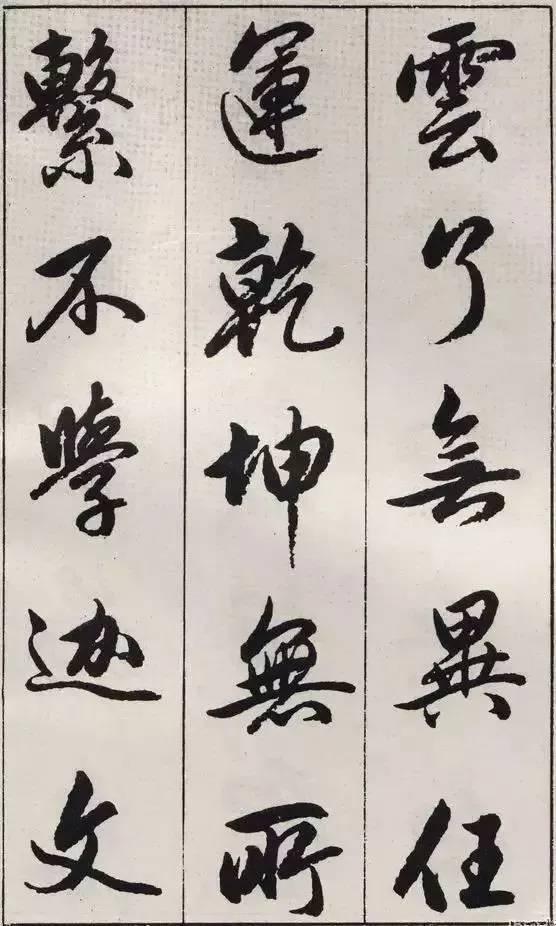 雲了無異任
運乾坤無所
繫不學迹文